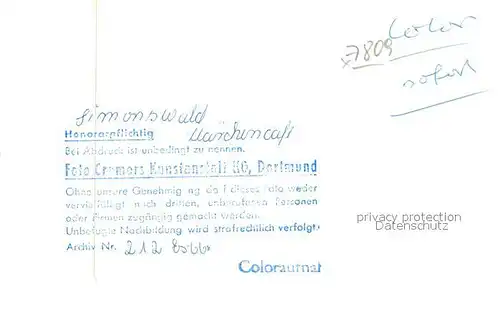 Color
x7809
sofort
Simonswald
Märchencafe
Honorarpflichtig
Bei Abdruck ist unbedingt zu nennen.
Foto Cramers Kunstanstalt KG, Dortmund
Ohne unsere Genehmig ng da f dieses Foto weder
vervielfältigt noch dritten, unberufenen Personen
oder Firmen zugängig gemacht werden.
Unbefugte Nachbildung wird strafrechtlich verfolgt.
Archiv Nr. 212
privacy protection
Datenschutz